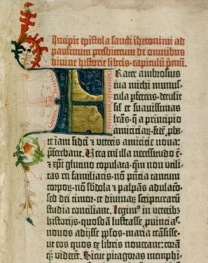 Incipit epistola sancti iheronimi ad
paulinum presbiterum de omnibus
divine historie libris capitulu pmu.
Frater ambrosius
tua michi munus-
cula pferens· detulit
sil et suavissimas
lras· q a principio
amicicia℞· fidē pba-
te iam fidei et veteris amicicie nova:
pferebant. Vera eni illa necessitudo ē·
et xpi glutino copulata· qm non utili-
tas rei familiaris· nō pntia tantum
corpo℞· nō sbdola et palpās adulacō·
sed dei timor· et divina℞ scriptura℞
studia conciliant. legim⁹ in veterib⁹
historijs· quosdā lustrasse puincias·
novos adijsse plos· maria transisse·
ut eos quos ex libris noverant: corā
q viderēt. Sicut pitagoras memphi-